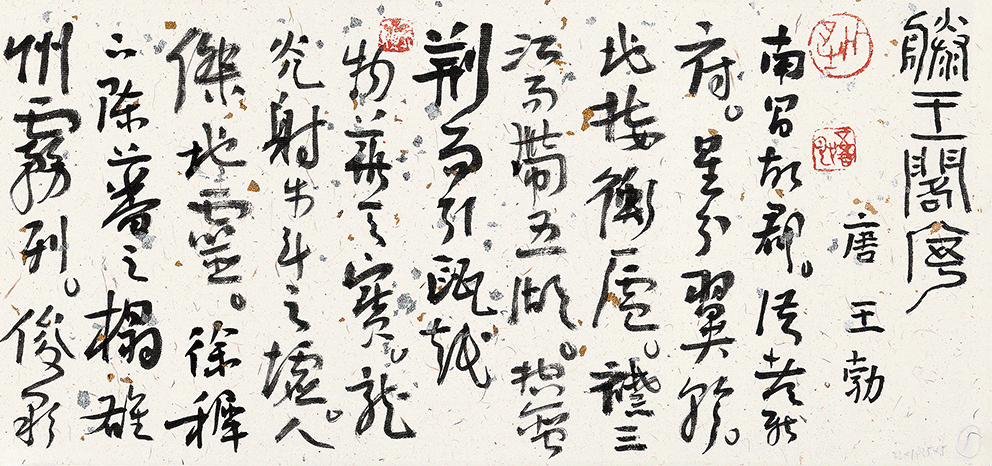 滕王閣序
唐 王勃
南昌故郡。洪都新
府。星分翼軫。
地接衡廬。襟三
江而帶五湖。控蠻
荆而引甌越
物華天寶。龍
光射牛斗之墟。人
傑地靈。徐穉
下陳蕃之榻雄
州霧列。俊彩